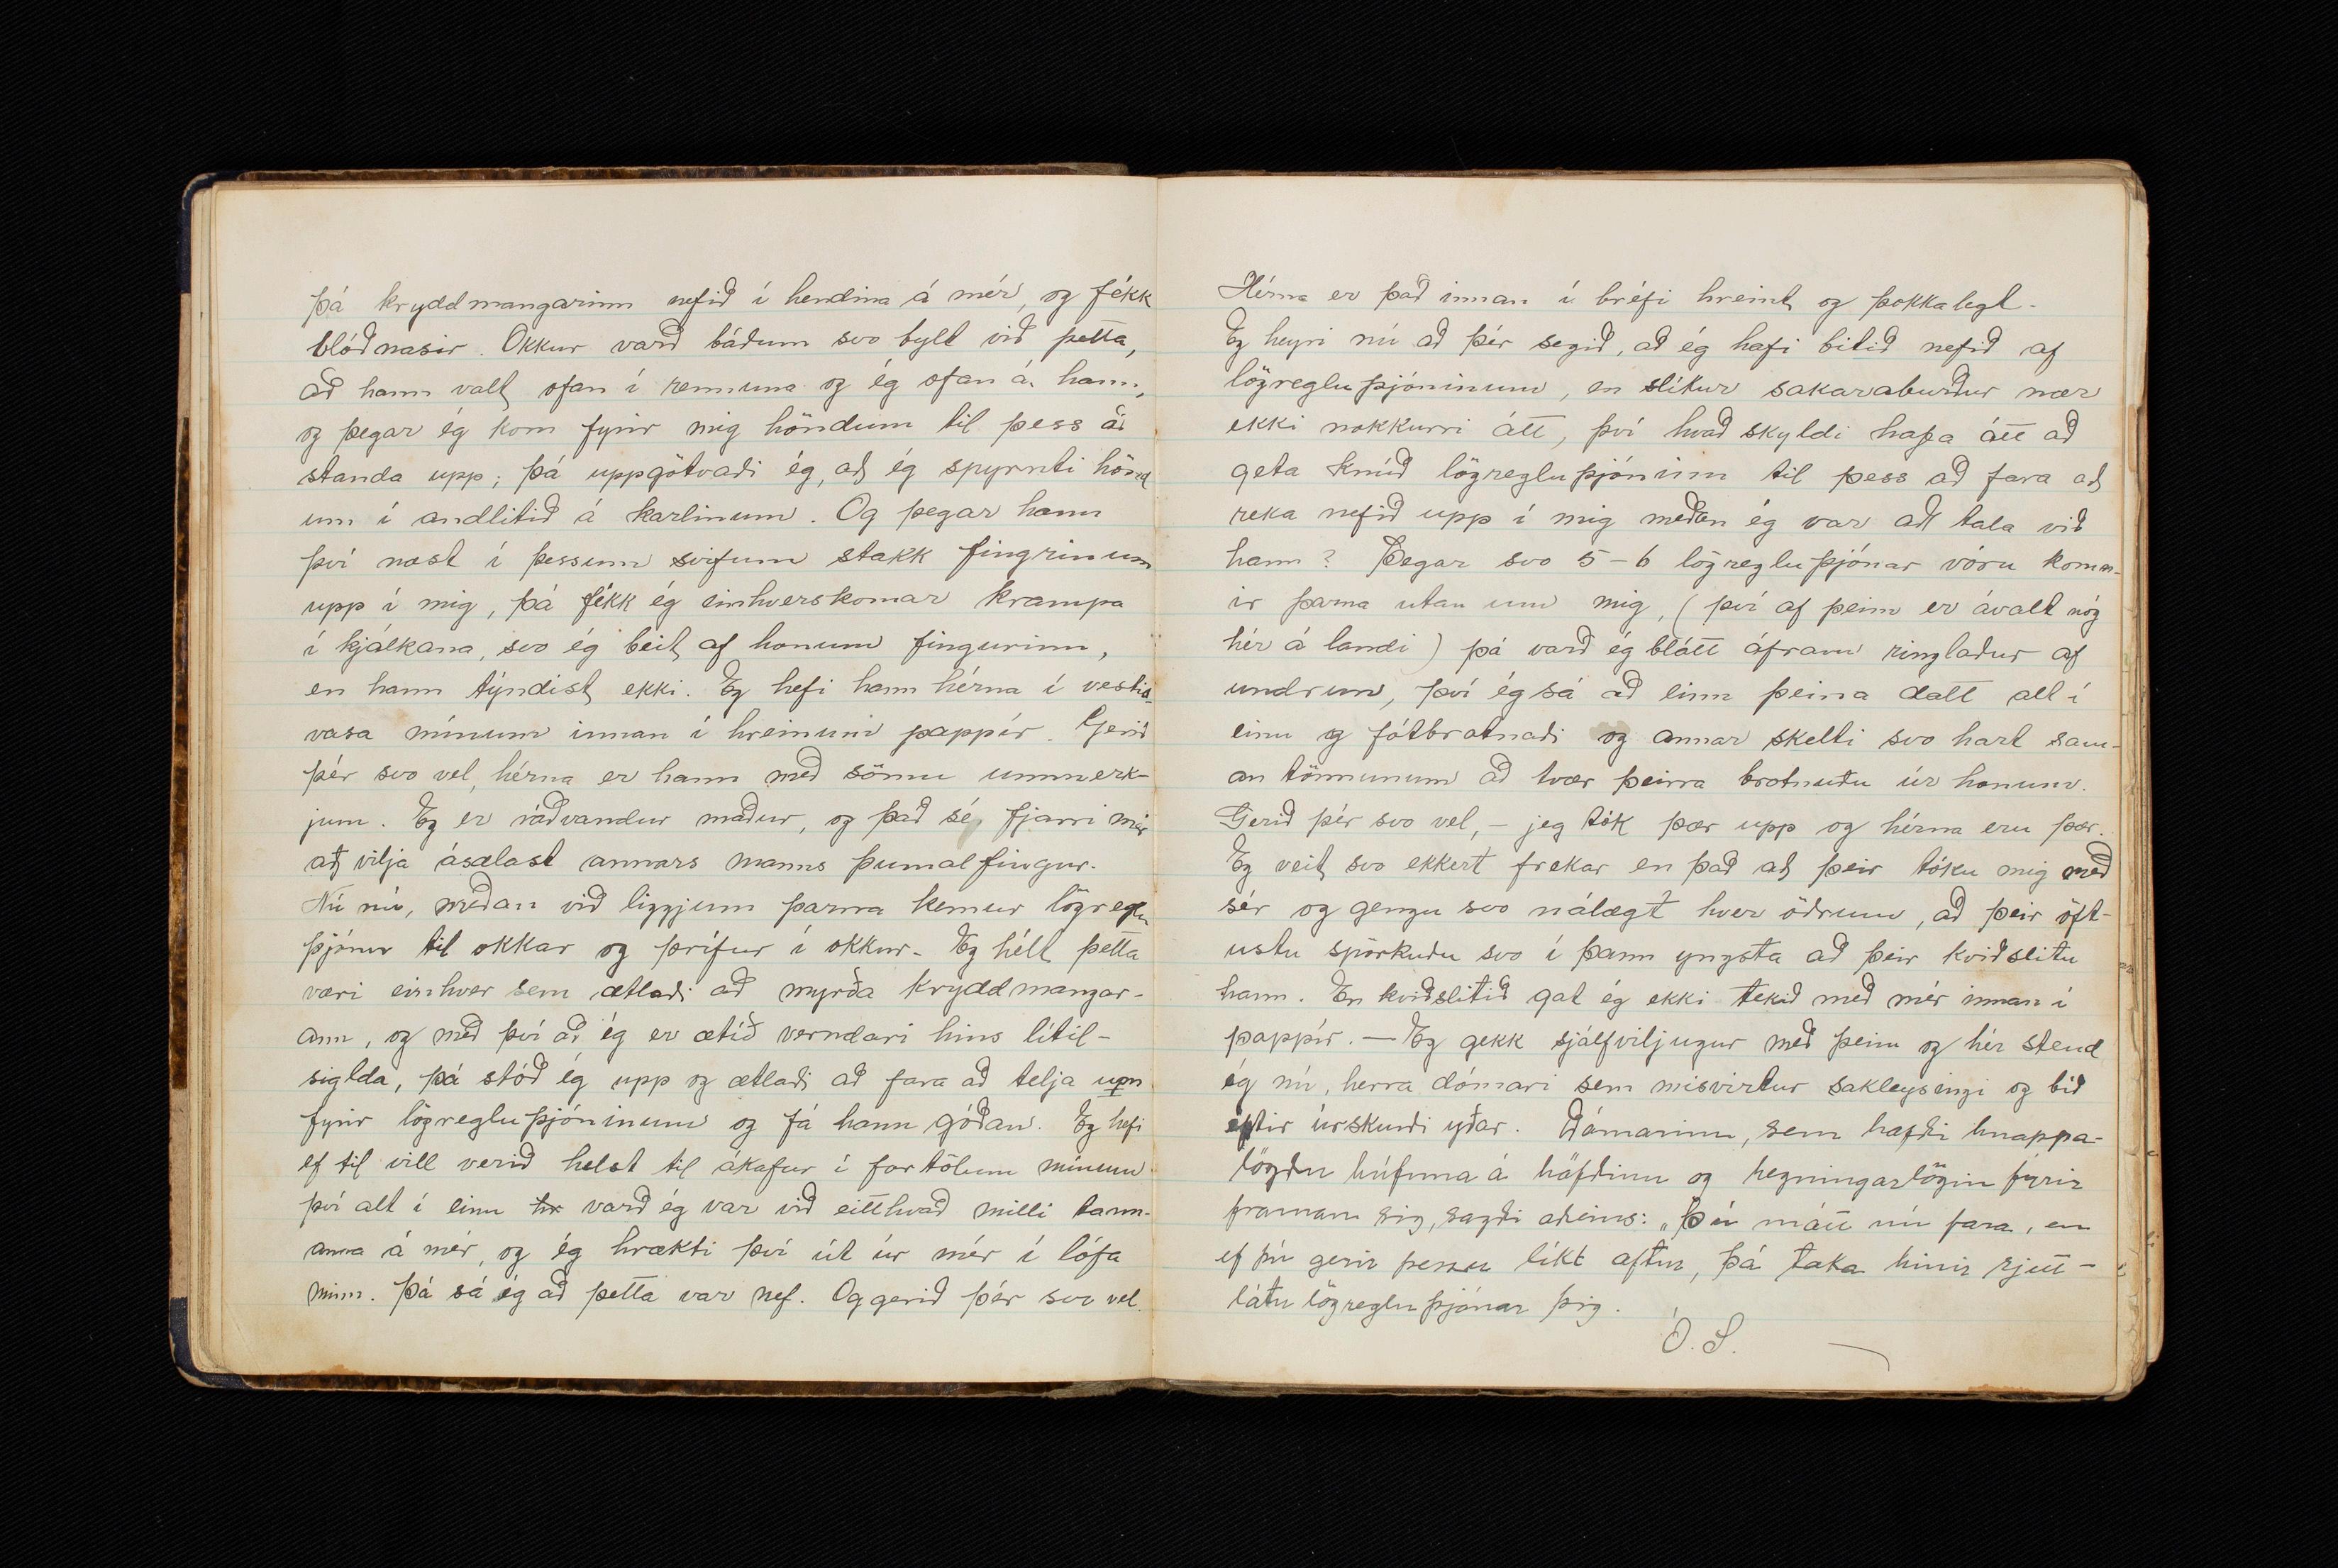 þá kryddmangarinn nefið í hendina á mér, og fékk
blóðnasir. Okkur varð báðum svo bylt við þetta,
að hann valt ofan í rennuna og ég ofan á hann,
og þegar ég kom fyrir mig höndum til þess að
standa upp; þá uppgötvaði ég, að ég spyrnti hönd
um í andlitið á karlinum. Og þegar hann
því næst í þessum svifum stakk fingrinum
upp í mig, þá fékk ég einhverskonar krampa
í kjálkana, svo ég beit af honum fingurinn,
en hann týndist ekki. Eg hefi hann hérna í vestis-
vasa mínum innan í hreinum pappír. Gerið
þér svo vel, hérna er hann með sönnu ummerk-
jum. Eg er ráðvandur maður, og það sé fjarri mér
að vilja ásælast annars manns þumalfingur.
Nú nú, meðan við liggjum þarna kemur lögreglu
þjónn til okkar og þrífur í okkur. Eg hélt þetta
væri einhver sem ætlaði að myrða kryddmangar-
ann, og með því að ég er ætíð verndari hins lítil-
siglda, þá stóð ég upp og ætlaði að fara að telja um
fyrir lögregluþjóninum og fá hann góðan. Eg hefi
ef til vill verið helst til ákafur í fortölum mínum
því alt í einu varð ég var við eitthvað milli tann-
anna á mér, og ég hrækti því út úr mér í lófa
minn. Þá sá ég að þetta var nef. Og gerið þér svo vel.
Hérna er það innan í bréfi hreint og þokkalegt.
Eg heyri nú að þér segið, að ég hafi bitið nefið af
lögregluþjóninum, en slíkur sakaraburður nær
ekki nokkurri átt, því hvað skyldi hafa átt að
geta knúð lögregluþjóninn til þess að fara að
reka nefið upp í mig meðan ég var að tala við
hann? Þegar svo 5-6 lögregluþjónar vóru komn-
ir þarna utan um mig, (því af þeim er ávalt nóg
hér á landi) þá varð ég blátt áfram ringlaður af
undrun, því ég sá að einn þeirra datt alt í
einu og fótbrotnaði og annar skelti svo hart sam-
an tönnunum að tvær þeirra brotnuðu úr honum.
Gerið þér svo vel, - jeg tók þær upp og hérna eru þær.
Eg veit svo ekkert frekar en það að þeir tóku mig með
sér og gengu svo nálægt hver öðrum, að þeir öft-
ustu spörkuðu svo í þann yngsta að þeir kviðslitu
hann. En kviðslitið gat ég ekki tekið með mér innan í
pappír. — Eg gekk sjálfviljugur með þeim og hér stend
ég nú, herra dómari sem misvirtur sakleysingi og bið
eftir úrskurði yðar. Dómarinn, sem hafði hnappa-
lögðu húfuna á höfðinu og hegningarlögin fyrir
framan sig, sagði aðeins: „Þú mátt nú fara, en
ef þú gerir þessu líkt aftur, þá taka hinir rjett-
látu lögregluþjónar þig.
Ó. S.